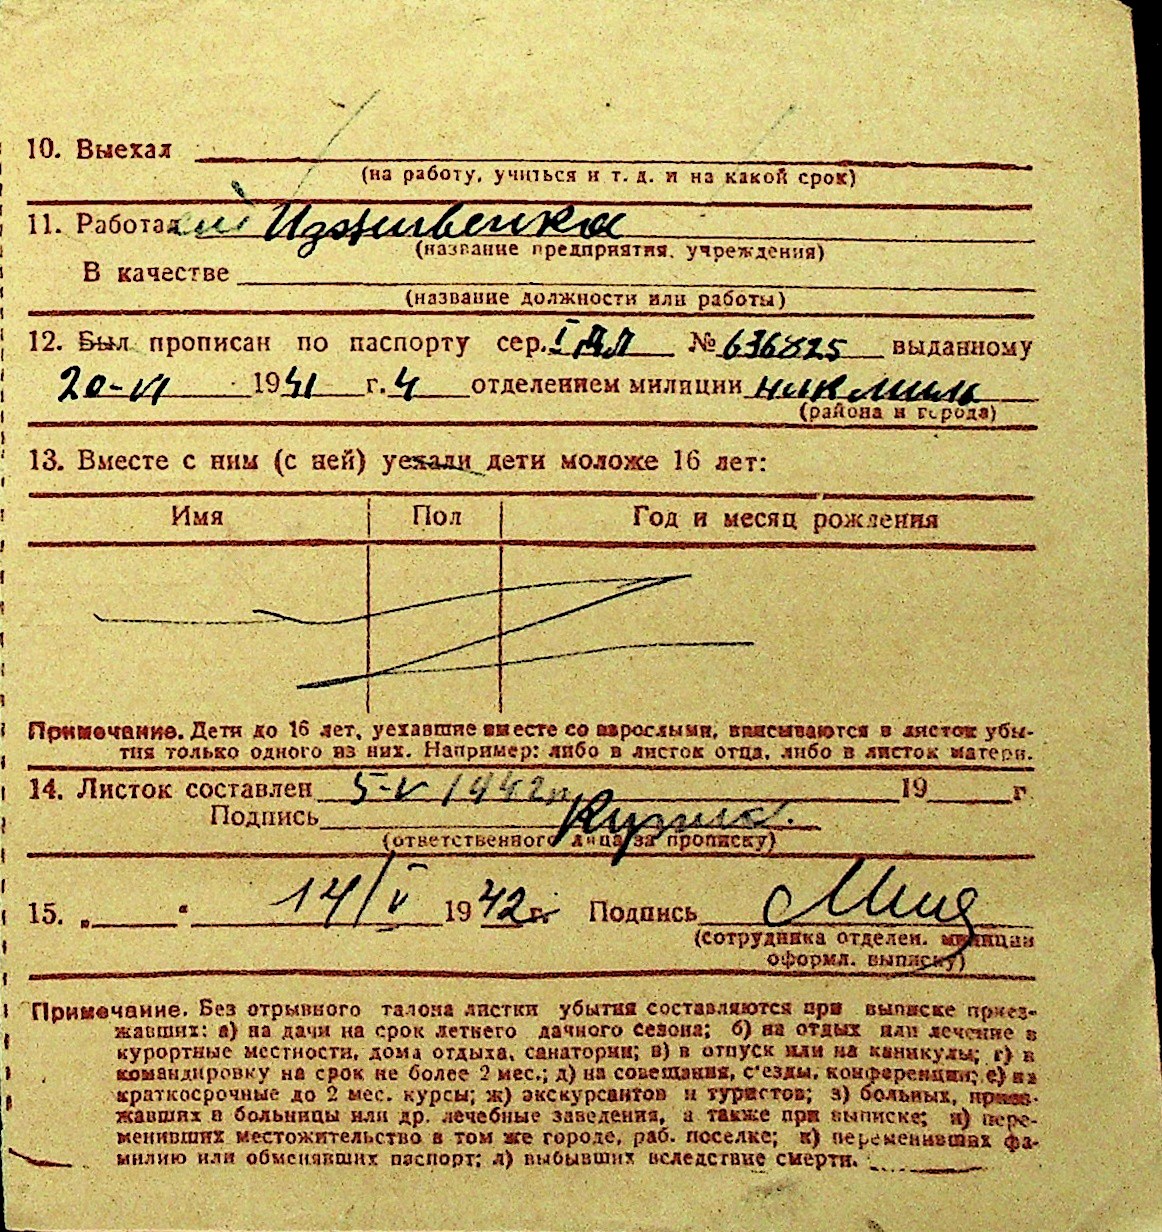 10. Выехал
(на работу, учиться и т. д. и на какой срок)
11. Работал Иждивенка
(название предприятия, учреждения)
В качестве
(название должности или работы)
12. Был прописан по паспорту сер. № 636825 выданному
20-VI 1941 г. 4 отделением милиции
(района и города)
13. Вместе с ним (с ней) уехали дети моложе 16 лет:
Имя Пол Год и месяц рождения
Примечание. Дети до 16 лет, уехавшие вместе со взрослыми, вписываются в листок убы-
тия только одного из них. Например: либо в листок отца, либо в листок матери.
14. Листок составлен 5-V 1942г 19 г.
Подпись
(ответственного лица за прописку)
15. „ “ 14/V 1942 г. Подпись
(сотрудника отделен. милиции
оформл. выписку)
Примечание. Без отрывного талона листки убытия составляются при выписке приез-
жавших: а) на дачи на срок летнего дачного сезона; б) на отдых или лечение в
курортные местности, дома отдыха, санатории; в) в отпуск или на каникулы; г) в
командировку на срок не более 2 мес.; д) на совещания, с'езды, конференции; е) на
краткосрочные до 2 мес. курсы; ж) экскурсантов и туристов; з) больных, приез-
жавших в больницы или др. лечебные заведения, а также при выписке; и) пере-
менивших местожительство в том же городе, раб. поселке; к) переменивших фа-
милию или обменявших паспорт; л) выбывших вследствие смерти.